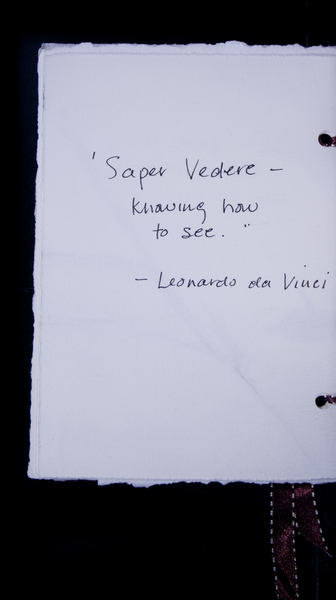 'Saper Vedere –
knowing how
to see."
– Leonardo da Vinci